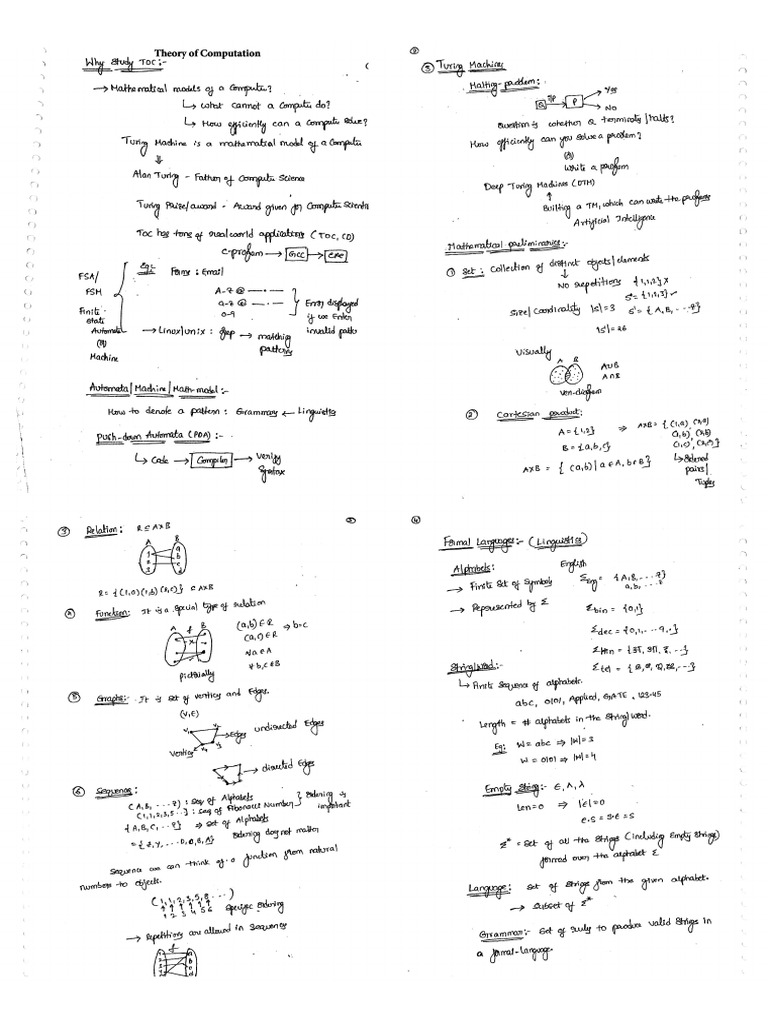 Theory of Computation
Why Study TOC:-
→ Mathematical models of a Computer?
↳ What cannot a Computer do?
↳ How efficiently can a Computer Solve?
Turing Machine is a mathematical model of a Computer
⇓
Alan Turing - Father of Computer Science
Turing Prize/award - Award given for Computer Scientist
TOC has tons of realworld applications (TOC, CD)
C-program → GCC → EXE
Eg: Forms: Email
FSA/
FSM
Finite-
State
Automata
(OR)
Machine
A-Z @ — . —
a-z @ — . —
0-9
Error displayed
if we Enter
invalid pattern
→ Linux/Unix : grep → matching
patterns
Automata/Machine/Math-model:-
How to denote a pattern : Grammars ← Linguistics
Push-down Automata (PDA) :-
↳ Code → Compiler → Verify
Syntax
②
③ Turing Machines
Halting-problem:
Q → P
Yes
No
Question is whether Q terminates/halts?
How efficiently can you solve a problem?
(OR)
Write a program
Deep Turing Machines (DTM)
↑
Building a TM, which can write the program
Artificial Intelligence
Mathematical preliminaries:-
① Set : Collection of distinct objects/elements
↓
No repetitions {1,1,2} ✗
S = {1,2,3} ✓
Size/Cardinality |S| = 3 S' = {A,B, ... Z}
|S'| = 26
Visually
A B
A∪B
A∩B
Ven-diagram
② Cartesian product:
A = {1,2} ⇒ A×B = { (1,a) (2,a)
B = {a,b,c} (1,b) (2,b)
(1,c) (2,c) }
A×B = { (a,b) | a∈A, b∈B }
↳ Ordered
pairs/
Tuples
③ Relation: R ⊆ A×B
A B
1 2 3
a b c d
R = {(1,a)(1,b)(2,c)} ⊆ A×B
④ Function: It is a special type of relation
A f B
(a,b)∈R ⇒ b=c
(a,c)∈R
∀a∈A
∀b,c∈B
pictorially
⑤ Graphs:- It is set of vertices and Edges.
(V,E)
V1 V2 V3 V4
→ Edges undirected Edges
Vertices
→ directed Edges
⑥ Sequence:
(A,B, ... Z) : Seq of Alphabets
(1,1,2,3,5...) : Seq of Fibonacci Number
Ordering is
important
{A,B,C, ... Z} ⇒ Set of Alphabets
= {Z,Y, ... D,C,B,A} Ordering doy not matter
Sequence we can think of a function from natural
numbers to objects.
(1,1,2,3,5,8,...)
↑ ↑ ↑ ↑ ↑ ↑
1 2 3 4 5 6 Specific Ordering
→ Repetitions are allowed in Sequence
f
④
Formal Languages:- (Linguistics)
Alphabets: English
→ Finite Set of Symbols Σeng = {A,B, ... Z
a,b, ... z}
→ Represented by Σ Σbin = {0,1}
Σdec = {0,1, ... 9, .}
String/word:-
↳ Finite Sequence of alphabets.
abc, 0101, Applied, GATE, 123.45
Length = # alphabets in the String/word.
Eg: W = abc ⇒ |W| = 3
W = 0101 ⇒ |W| = 4
Empty String:- ∈, Λ, λ
Len=0 ⇒ |ε| = 0
ε.s = s.ε = s
Σ* = Set of all the Strings (including Empty Strings)
formed over the alphabet Σ
Language: Set of Strings from the given alphabet.
→ Subset of Σ*
Grammar:- Set of rules to produce valid Strings in
a formal-language.